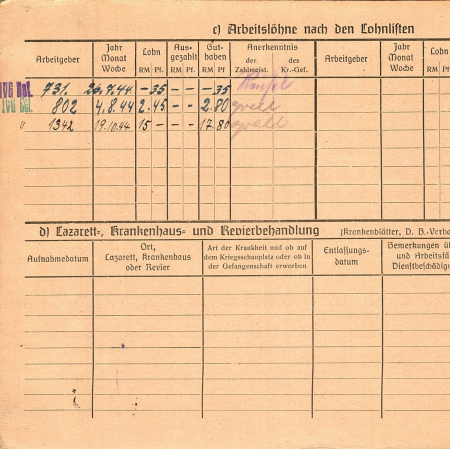 c) Arbeitslöhne nach den Lohnlisten
Arbeitgeber Jahr Monat Woche Lohn RM Pf. Aus- gezahlt RM Pf. Gut- haben RM Pf. Anerkenntnis der Zahlmeist. des Kr.-Gef. Arbeitgeber Jahr Monat Woche Lohn RM Pf
731. 26.7.44 - 35 - - - 35
802 4.8.44 2.45 - - 2.80
" 1342 19.10.44 15 - - - 17.80
d) Lazarett-, Krankenhaus- und Revierbehandlung (Krankenblätter, D. B.-Verha
Aufnahmedatum Ort, Lazarett, Krankenhaus oder Revier Art der Krankheit und ob auf dem Kriegsschauplatz oder ob in der Gefangenschaft erworben Entlassungs- datum Bemerkungen üb und Arbeitsfä Dienstbeschädig